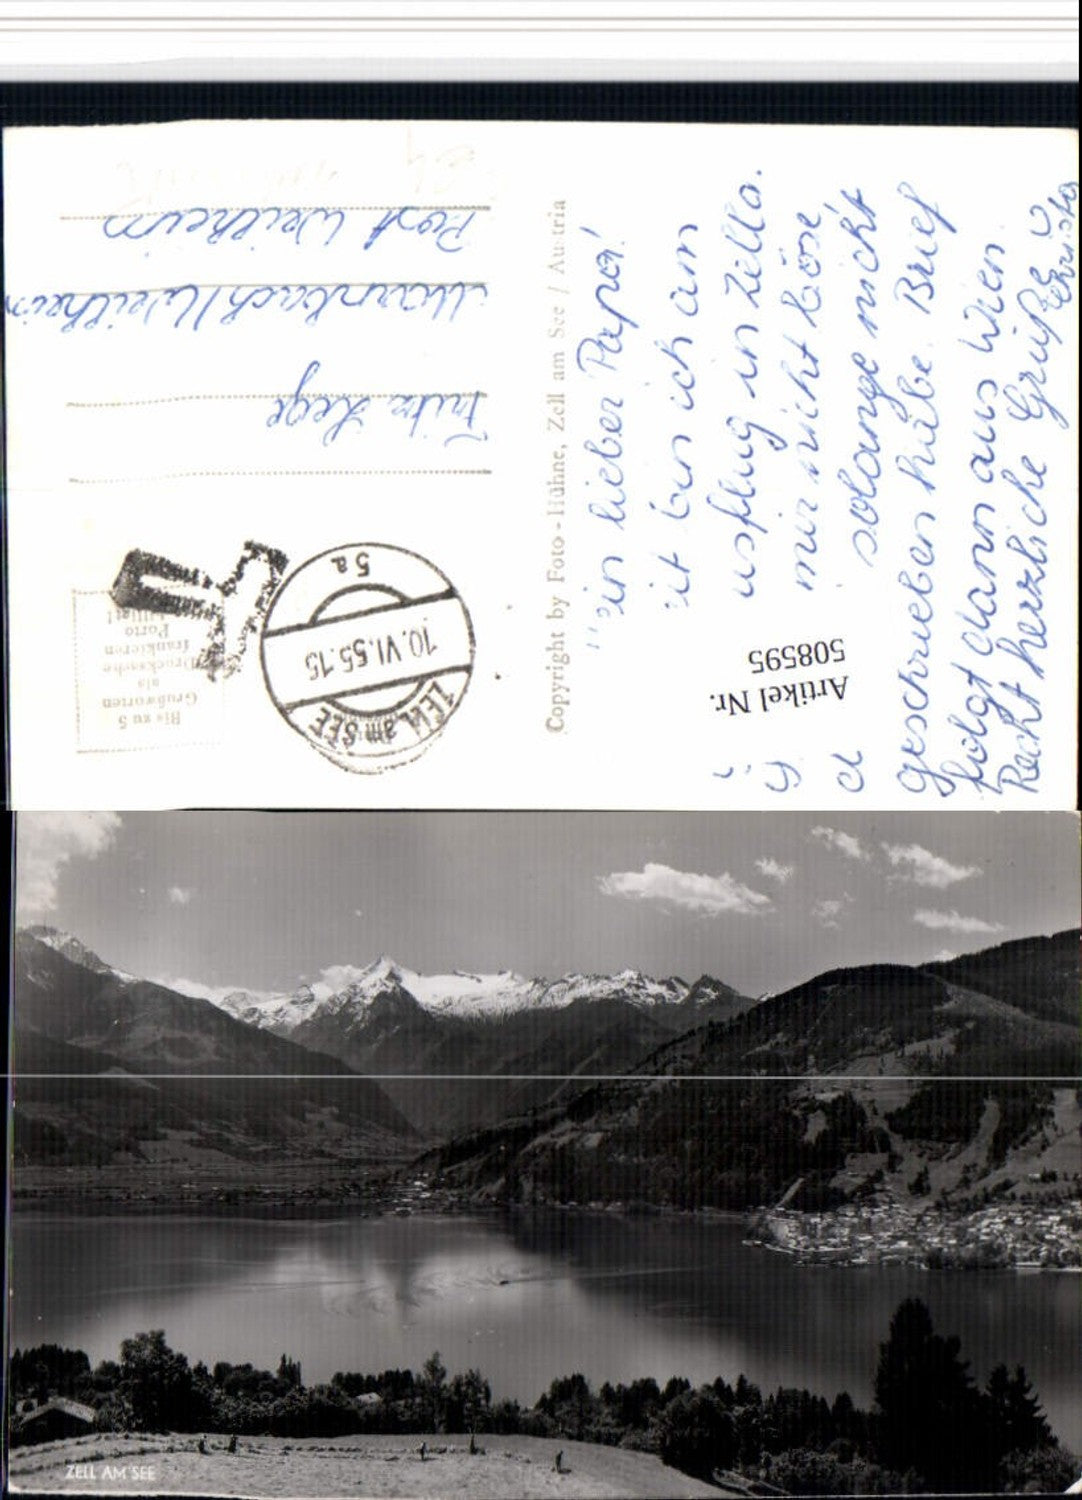 "ein lieber Papa!
it bin ich am
usflug in Zell a.
mir nicht böse
solange nicht
geschrieben habe. Brief
folgt dann aus Wien.
Recht herzliche Grüße
Artikel Nr.
508595
Copyright by Foto-Hühne, Zell am See / Austria
Bis zu 5
Grußworten
als
Drucksache
frankieren
Porto
ZELL am SEE
10.VI.55.15
5a
Fritz
Post Weilheim
ZELL AM SEE